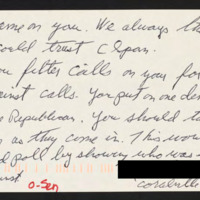 ame on you. We always th
could trust C Span.
ou filter calls on your for
inst calls. You put on one de
e Republican. You should t
n as they come in. This wou
d poll by showing who was
urst
O-Sen
Coralville